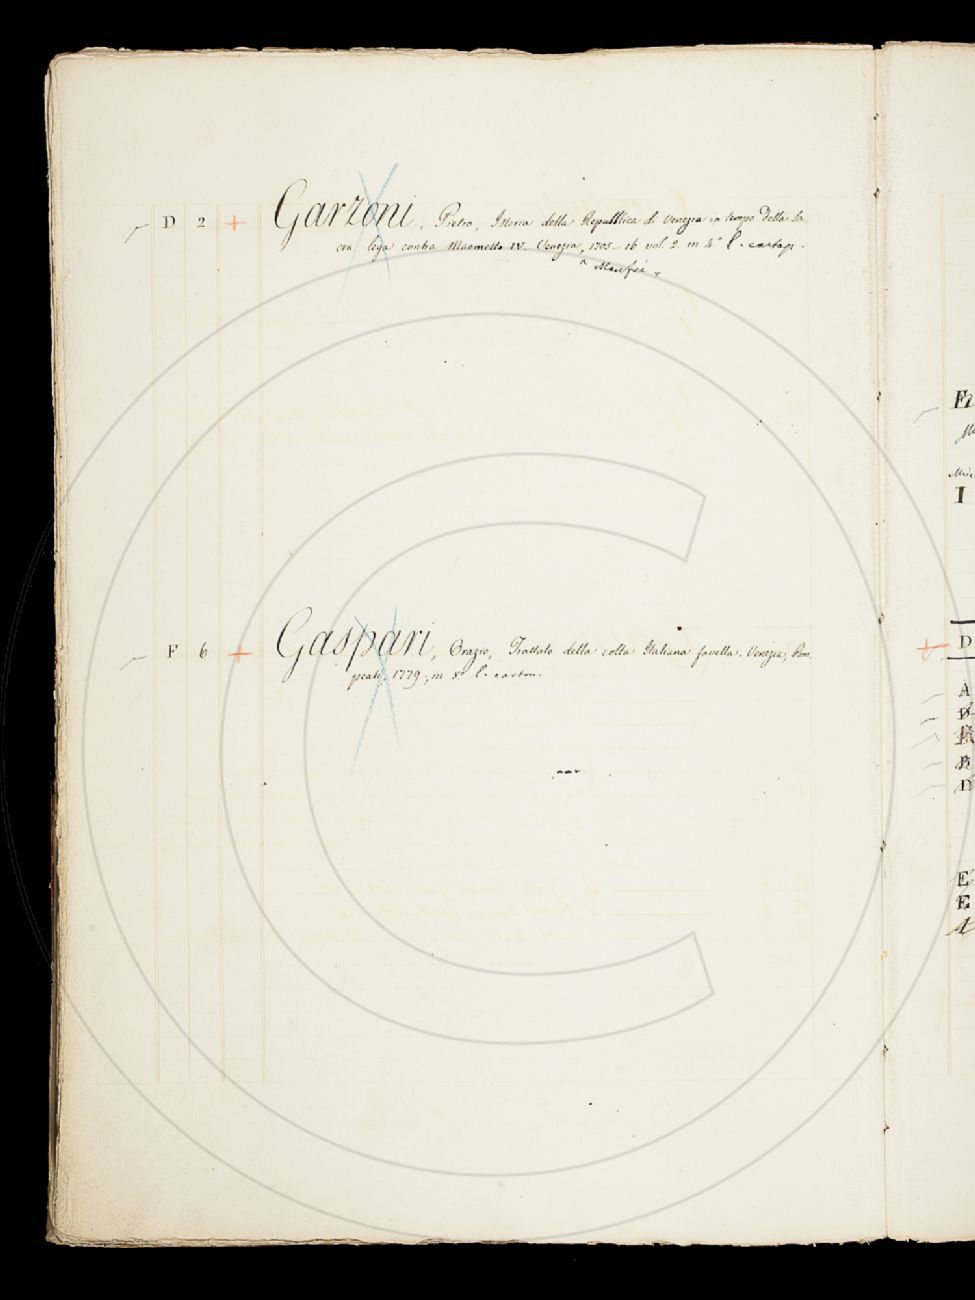 D 2 + Garzoni, Pietro, Istoria della Repubblica di Venezia in tempo della Sa
cra lega contra Maometto IV. Venezia, 1705-16 vol. 2. in 4° l. cartap.
^ Manfrè.
F 6 + Gaspari, Orazio, Trattato della colta Italiana favella. Venezia, Pom
peati, 1779; in 8° l. carton.
E
I
D
A
D
E
E